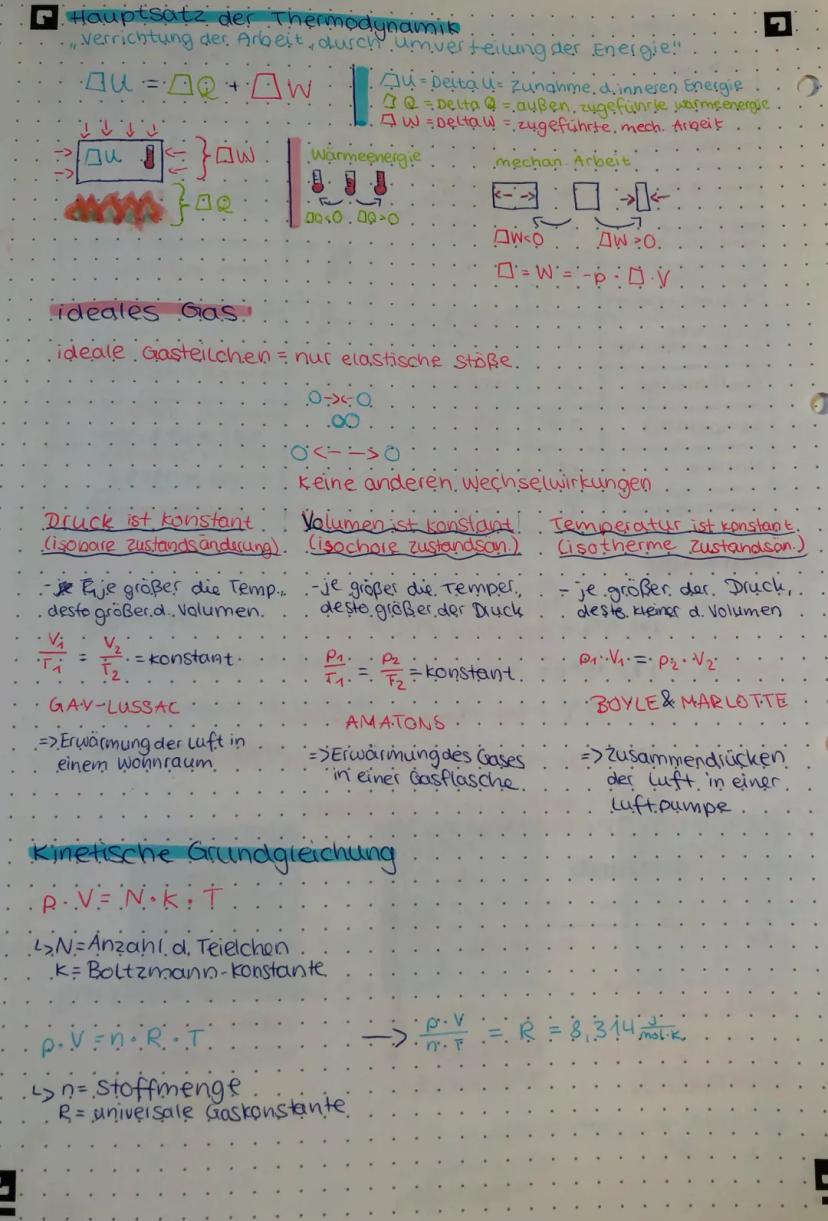 Hauptsatz der Thermodynamik
"Verrichtung der Arbeit, durch umverteilung der Energie!"
□U = □Q + □W
□U = Delta U = Zunahme d. inneren Energie
□Q = Delta Q = außen zugeführte wärmeenergie
□W = Delta W = zugeführte mech. Arbeit
□U
□W
□Q
Wärmeenergie
□Q<0 □Q>0
mechan. Arbeit
□W<0 □W>0
□ = W = -p · □ · V
ideales Gas
ideale Gasteilchen = nur elastische stöße
O-><-O
OO
O<- ->O
keine anderen Wechselwirkungen
Druck ist konstant
(isobare zustandsänderung)
- je größer die Temp.,
desto größer d. Volumen
V₁/T₁ = V₂/T₂ = konstant
GAY-LUSSAC
=> Erwärmung der Luft in
einem Wohnraum
Volumen ist konstant
(isochore zustandsän.)
- je größer die Temper.,
desto größer der Druck
p₁/T₁ = p₂/T₂ = konstant
AMATONS
=> Erwärmung des Gases
in einer Gasflasche
Temperatur ist konstant
(isotherme zustandsän.)
- je größer der Druck,
desto kleiner d. Volumen
p₁ · V₁ = p₂ · V₂
BOYLE & MARLOTTE
=> Zusammendrücken
der Luft in einer
Luftpumpe
Kinetische Grundgleichung
p · V = N · k · T
↳ N = Anzahl d. Teielchen
k = Boltzmann-Konstante
p · V = n · R · T
→ p·V/n·T = R = 8,314 J/mol·K
↳ n = Stoffmenge
R = universale Gaskonstante